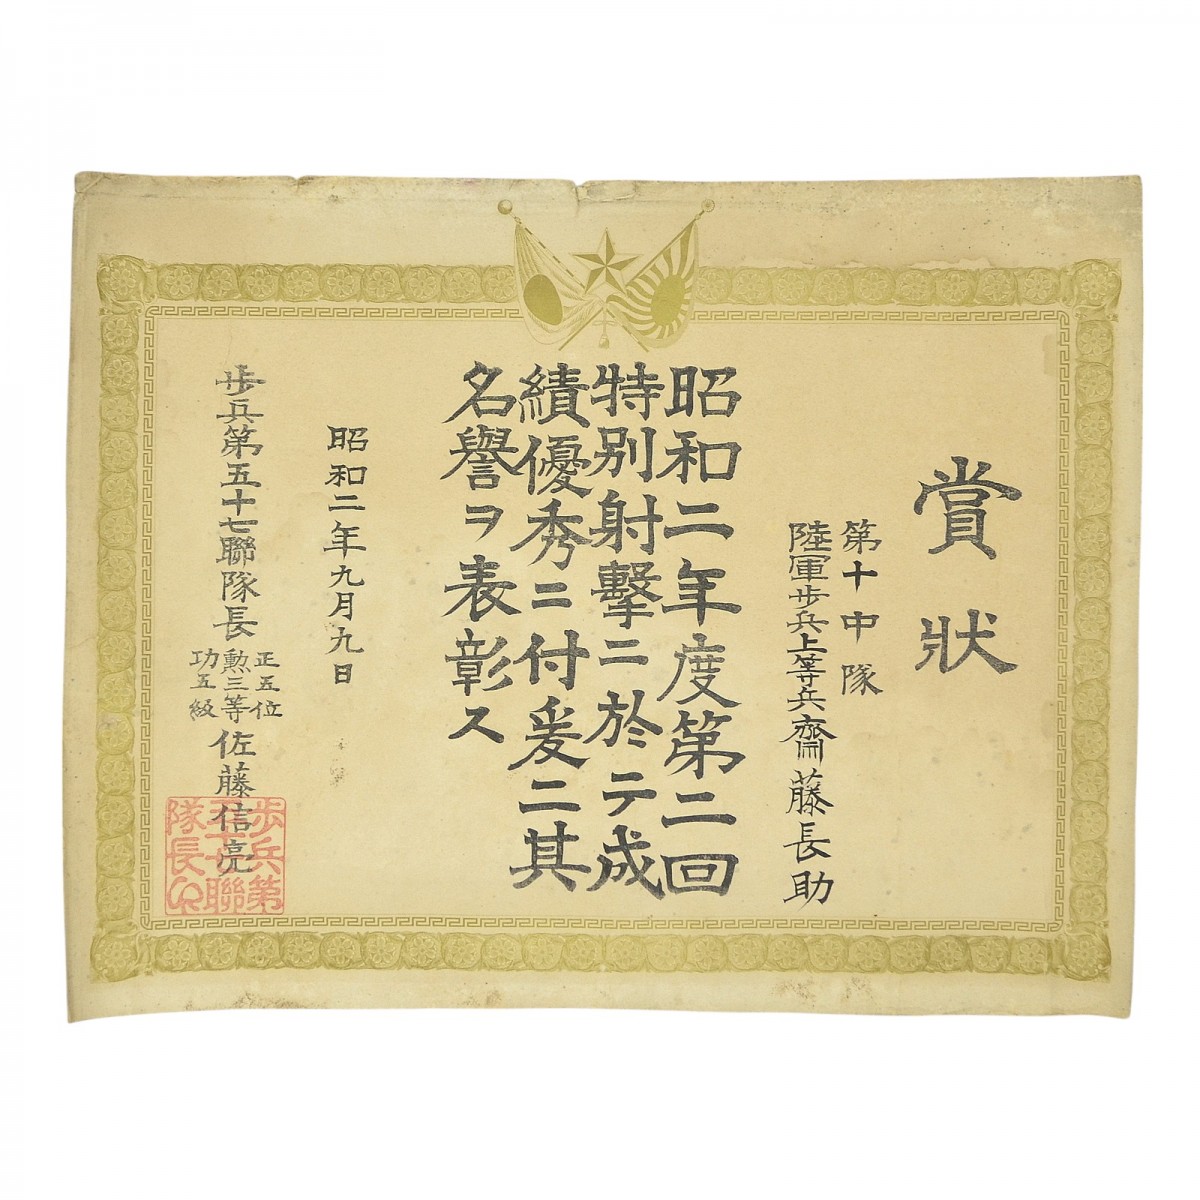 賞狀
第十中隊
陸軍歩兵上等兵齋藤長助
昭和二年度第二回
特別射擊ニ於テ成
績優秀ニ付爰ニ其
名譽ヲ表彰ス
昭和二年九月九日
歩兵第五十七聯隊長
正五位
勲三等
功五級
佐藤信亮
歩兵第
五十七聯
隊長印